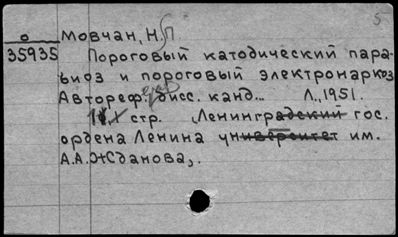 5
о Мовчан, Н.П
35935 Пороговый катодический пара-
биоз и пороговый электронаркоз
Автореф. дисс. канд... Л., 1951.
стр. Ленинградский гос.
ордена Ленина университет им.
А.А.Жданова,.